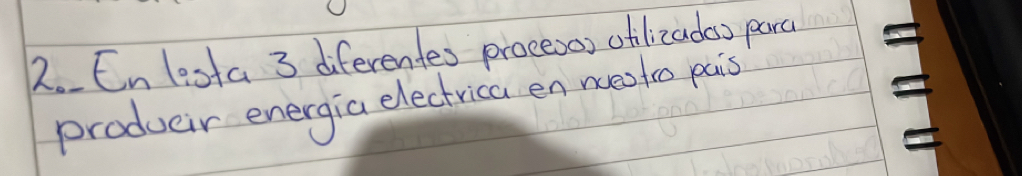 2.- En lista 3 diferentes procesos utilizados para
producir energía electrica en nuestro país